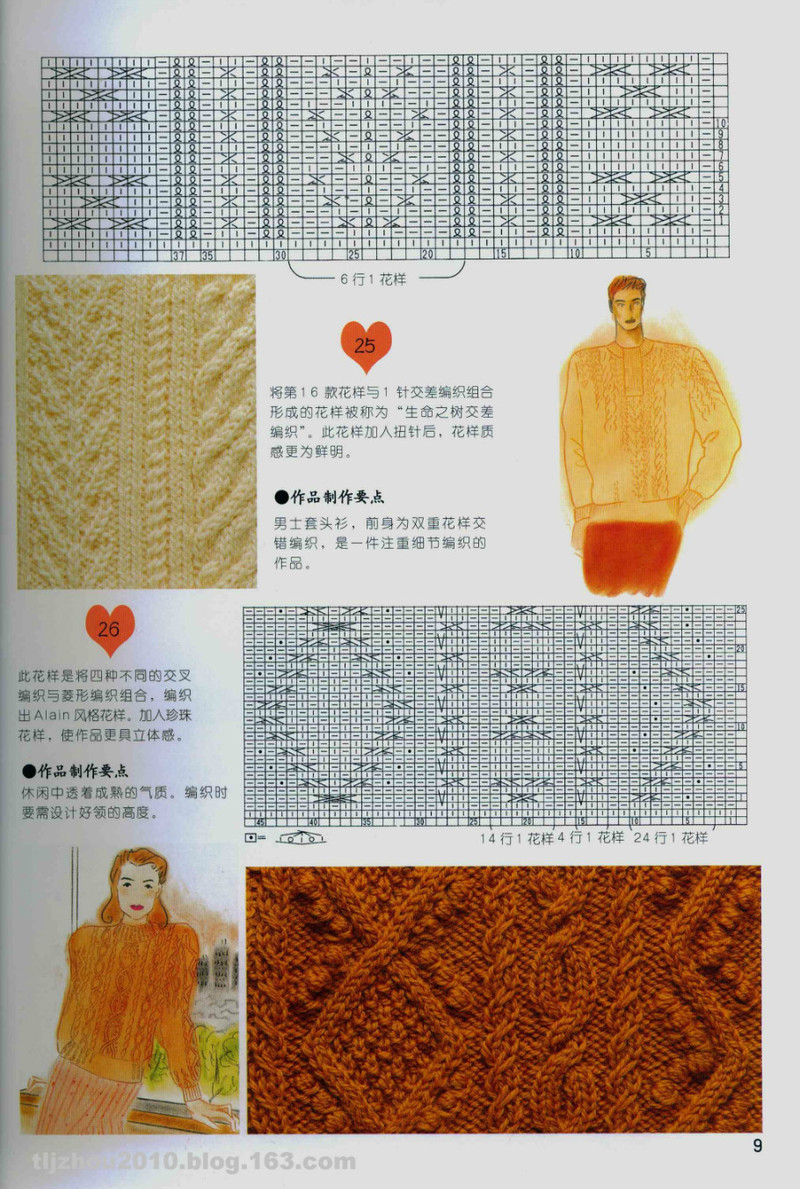 10
9
8
7
6
5
4
3
2
1
37 35 30 25 20 15 10 5 1
6行1花样
25
将第16款花样与1针交差编织组合
形成的花样被称为“生命之树交差
编织”。此花样加入扭针后，花样质
感更为鲜明。
●作品制作要点
男士套头衫，前身为双重花样交
错编织，是一件注重细节编织的
作品。
26
此花样是将四种不同的交叉
编织与菱形编织组合，编织
出Alain风格花样。加入珍珠
花样，使作品更具立体感。
●作品制作要点
休闲中透着成熟的气质。编织时
要需设计好领的高度。
25
20
15
10
5
1
45 40 35 30 25 20 15 10 5 1
14行1花样 4行1花样 24行1花样
9
tljzhou2010.blog.163.com